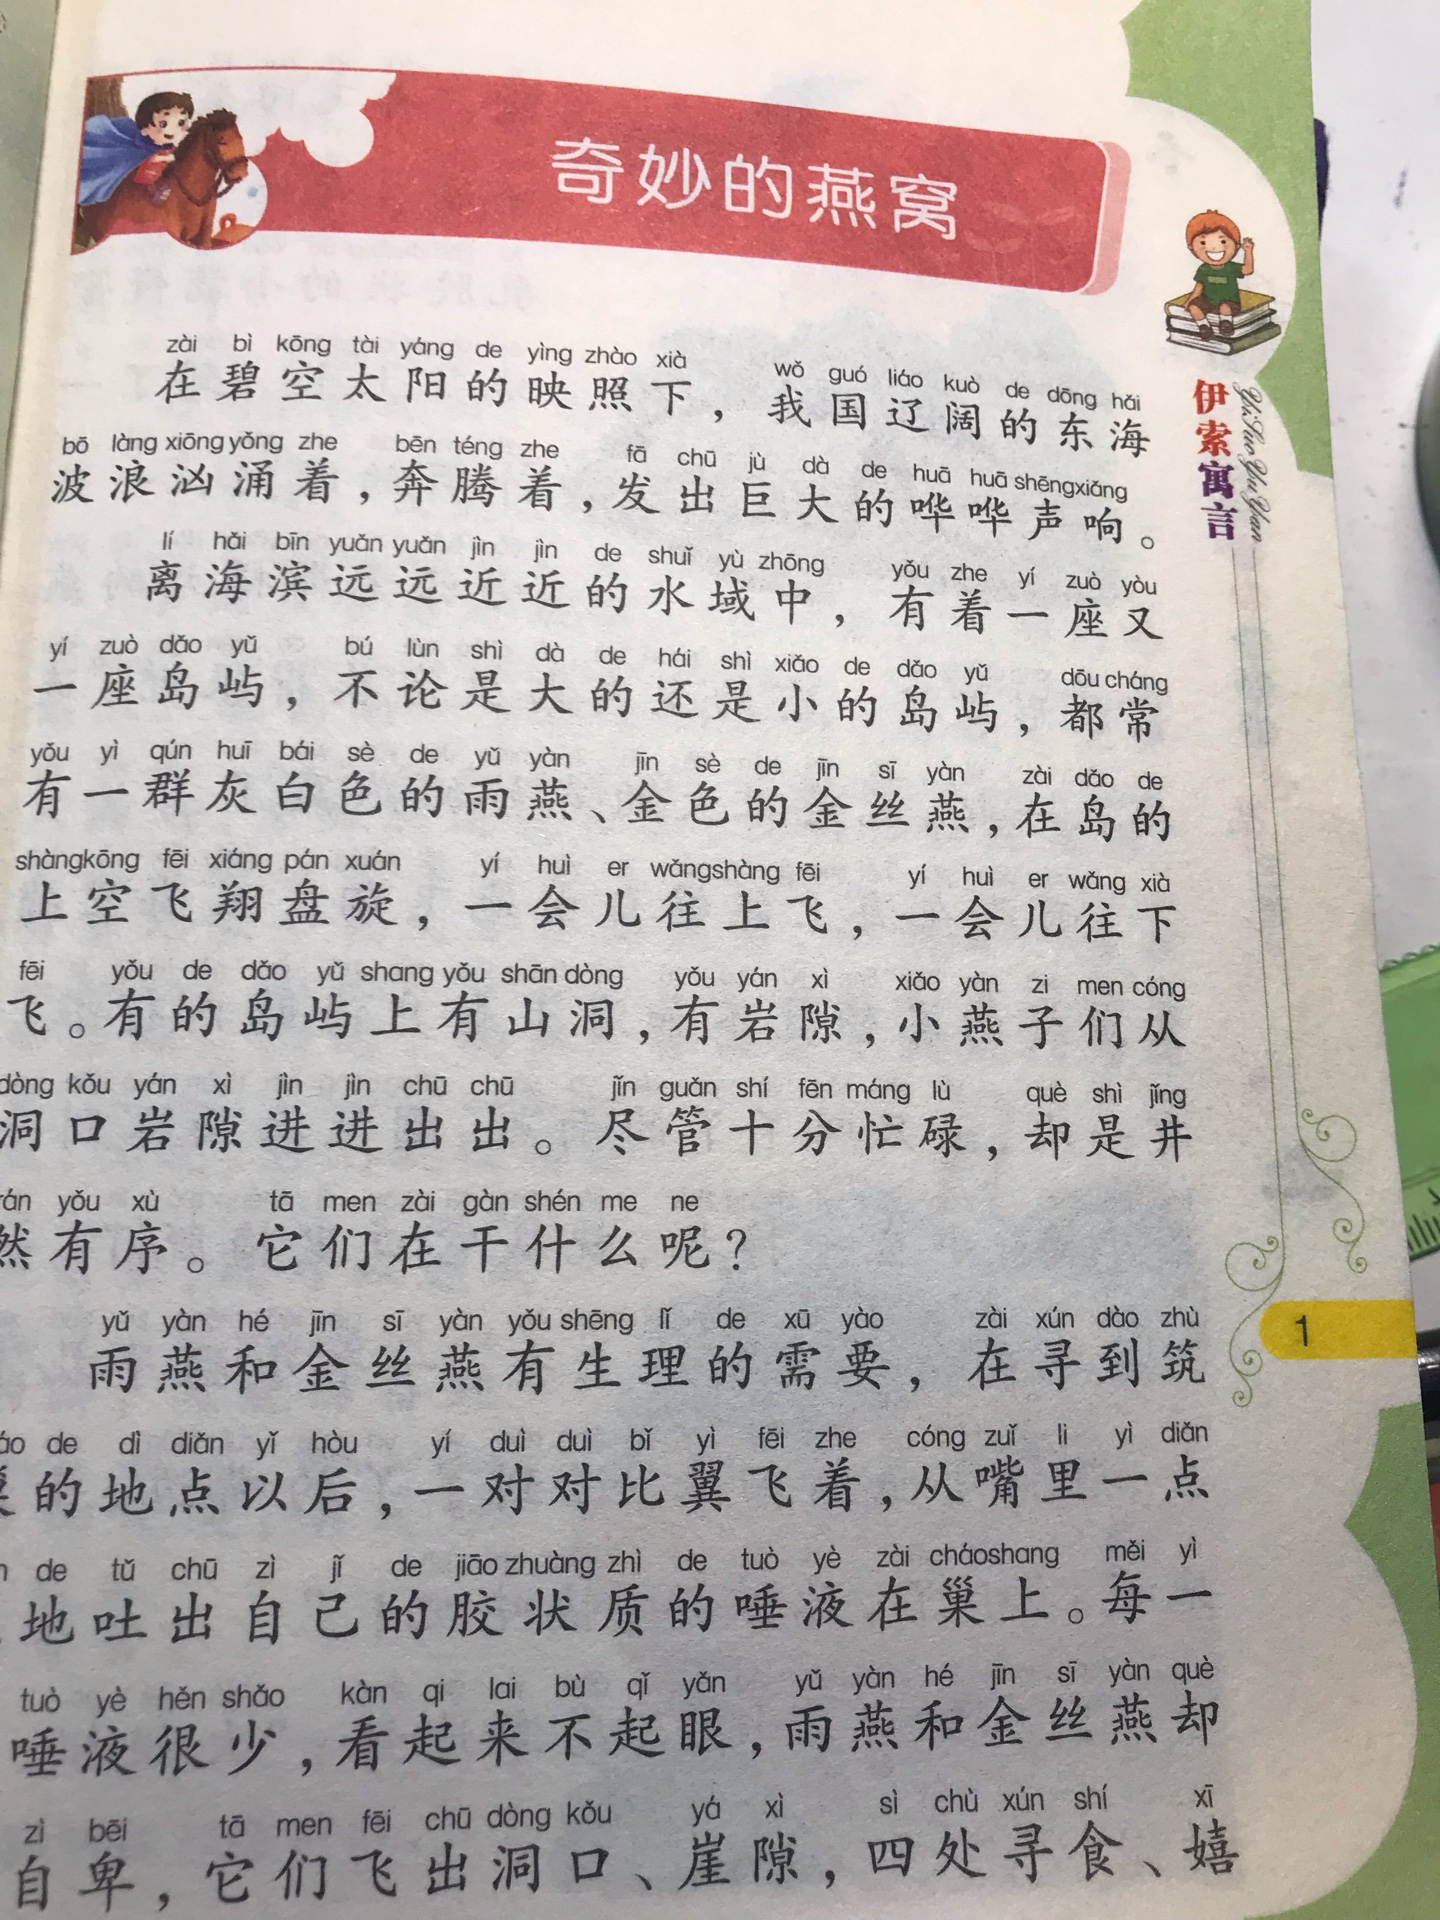 奇妙的燕窝
zài bì kōng tài yáng de yìng zhào xià wǒ guó liáo kuò de dōng hǎi
在碧空太阳的映照下，我国辽阔的东海
bō làng xiōng yǒng zhe bēn téng zhe fā chū jù dà de huā huā shēng xiǎng
波浪汹涌着，奔腾着，发出巨大的哗哗声响。
lí hǎi bīn yuǎn yuǎn jìn jìn de shuǐ yù zhōng yǒu zhe yí zuò yòu
离海滨远远近近的水域中，有着一座又
yí zuò dǎo yǔ bú lùn shì dà de hái shì xiǎo de dǎo yǔ dōu cháng
一座岛屿，不论是大的还是小的岛屿，都常
yǒu yì qún huī bái sè de yǔ yàn jīn sè de jīn sī yàn zài dǎo de
有一群灰白色的雨燕、金色的金丝燕，在岛的
shàng kōng fēi xiáng pán xuán yí huì er wǎng shàng fēi yí huì er wǎng xià
上空飞翔盘旋，一会儿往上飞，一会儿往下
fēi yǒu de dǎo yǔ shang yǒu shān dòng yǒu yán xì xiǎo yàn zi men cóng
飞。有的岛屿上有山洞，有岩隙，小燕子们从
dòng kǒu yán xì jìn jìn chū chū jǐn guǎn shí fēn máng lù què shì jǐng
洞口岩隙进进出出。尽管十分忙碌，却是井
yǒu xù tā men zài gàn shén me ne
然有序。它们在干什么呢？
yǔ yàn hé jīn sī yàn yǒu shēng lǐ de xū yào zài xún dào zhù
雨燕和金丝燕有生理的需要，在寻到筑
de dì diǎn yǐ hòu yí duì duì bǐ yì fēi zhe cóng zuǐ li yì diǎn
的地点以后，一对对比翼飞着，从嘴里一点
de tǔ chū zì jǐ de jiāo zhuàng zhì de tuò yè zài cháo shang měi yì
地吐出自己的胶状质的唾液在巢上。每一
tuò yè hěn shǎo kàn qi lai bù qǐ yǎn yǔ yàn hé jīn sī yàn què
唾液很少，看起来不起眼，雨燕和金丝燕却
zì bēi tā men fēi chū dòng kǒu yá xì sì chù xún shí xī
自卑，它们飞出洞口、崖隙，四处寻食、嬉
伊索寓言
Yi Suo Yu Yan
1